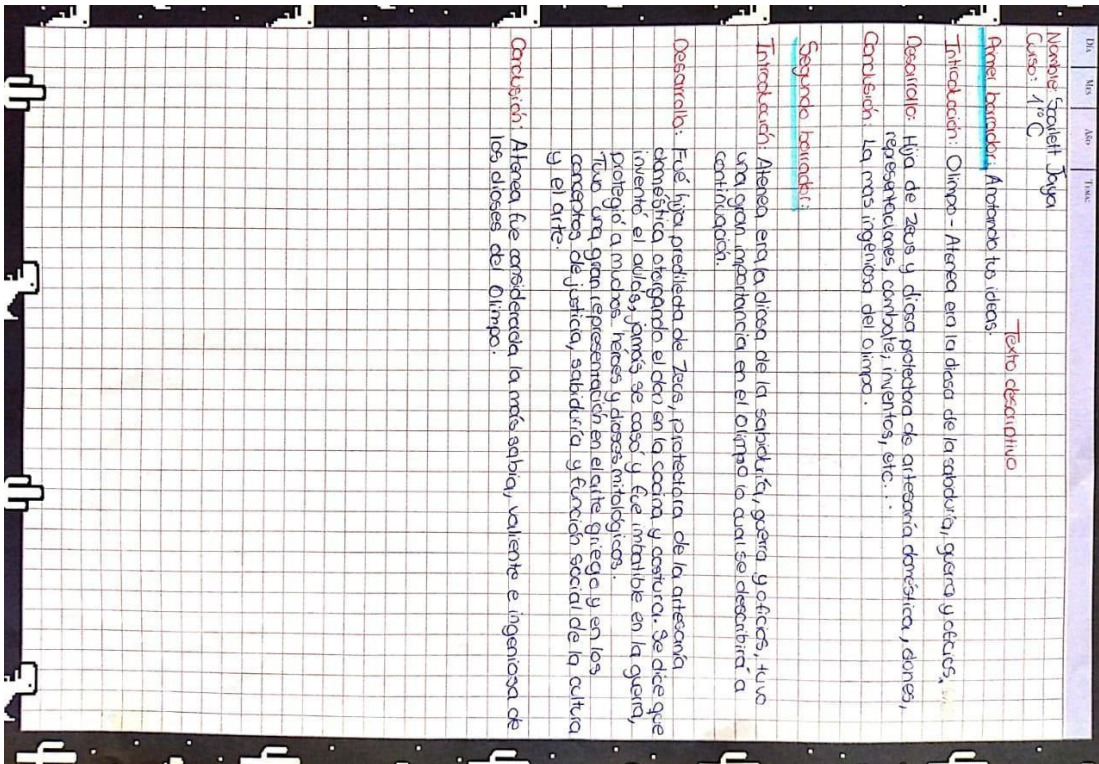 Día Mes Año Tema:
Nombre: Scarlett Jaya
Curso: 1ro C
Texto descriptivo
Primer borrador: Anotando tus ideas.
Introducción: Olimpo - Atenea era la diosa de la sabiduría, guerra y oficios.
Desarrollo: Hija de Zeus y diosa protectora de artesanía doméstica, dones,
representaciones, combate, inventos, etc...
Conclusión: La mas ingeniosa del Olimpo.
Segundo borrador:
Introducción: Atenea era la diosa de la sabiduría, guerra y oficios, tuvo
una gran importancia en el Olimpo lo cual se describirá a
continuación.
Desarrollo: Fué hija predilecta de Zeus, protectora de la artesanía
doméstica otorgando el don en la cocina y costura. Se dice que
inventó el aulós, jamás se casó y fue imbatible en la guerra,
protegió a muchos héroes y dioses mitológicos.
Tuvo una gran representación en el arte griego y en los
conceptos de justicia, sabiduría y función social de la cultura
y el arte.
Conclusión: Atenea fue considerada la más sabia, valiente e ingeniosa de
los dioses del Olimpo.